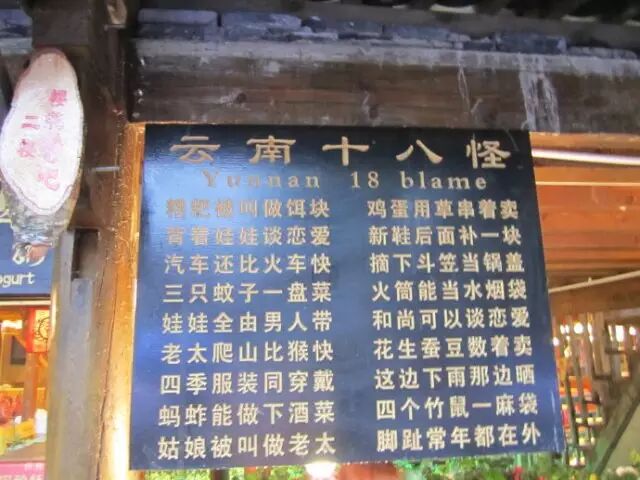 云南十八怪
Yunnan 18 blame
糟粑被叫做饵块
背着娃娃谈恋爱
汽车还比火车快
三只蚊子一盘菜
娃娃全由男人带
老太爬山比猴快
四季服装同穿戴
蚂蚱能做下酒菜
姑娘被叫做老太
鸡蛋用草串着卖
新鞋后面补一块
摘下斗笠当锅盖
火筒能当水烟袋
和尚可以谈恋爱
花生蚕豆数着卖
这边下雨那边晒
四个竹鼠一麻袋
脚趾常年都在外
ogurt